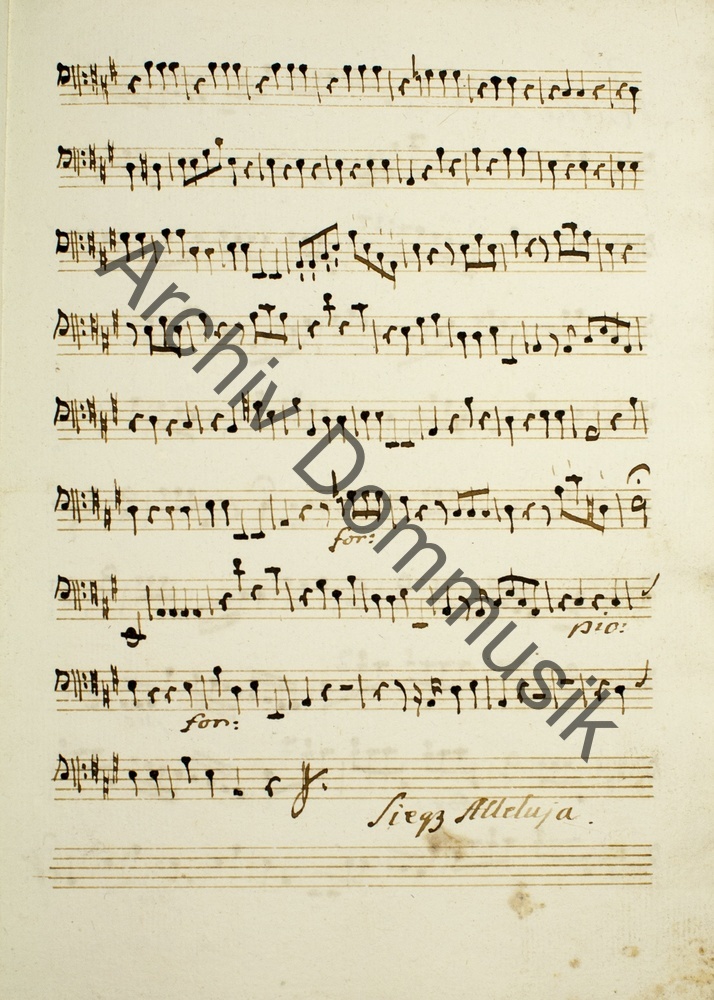 Archiv Dommusik
for:
pio:
for:
Alleluja.